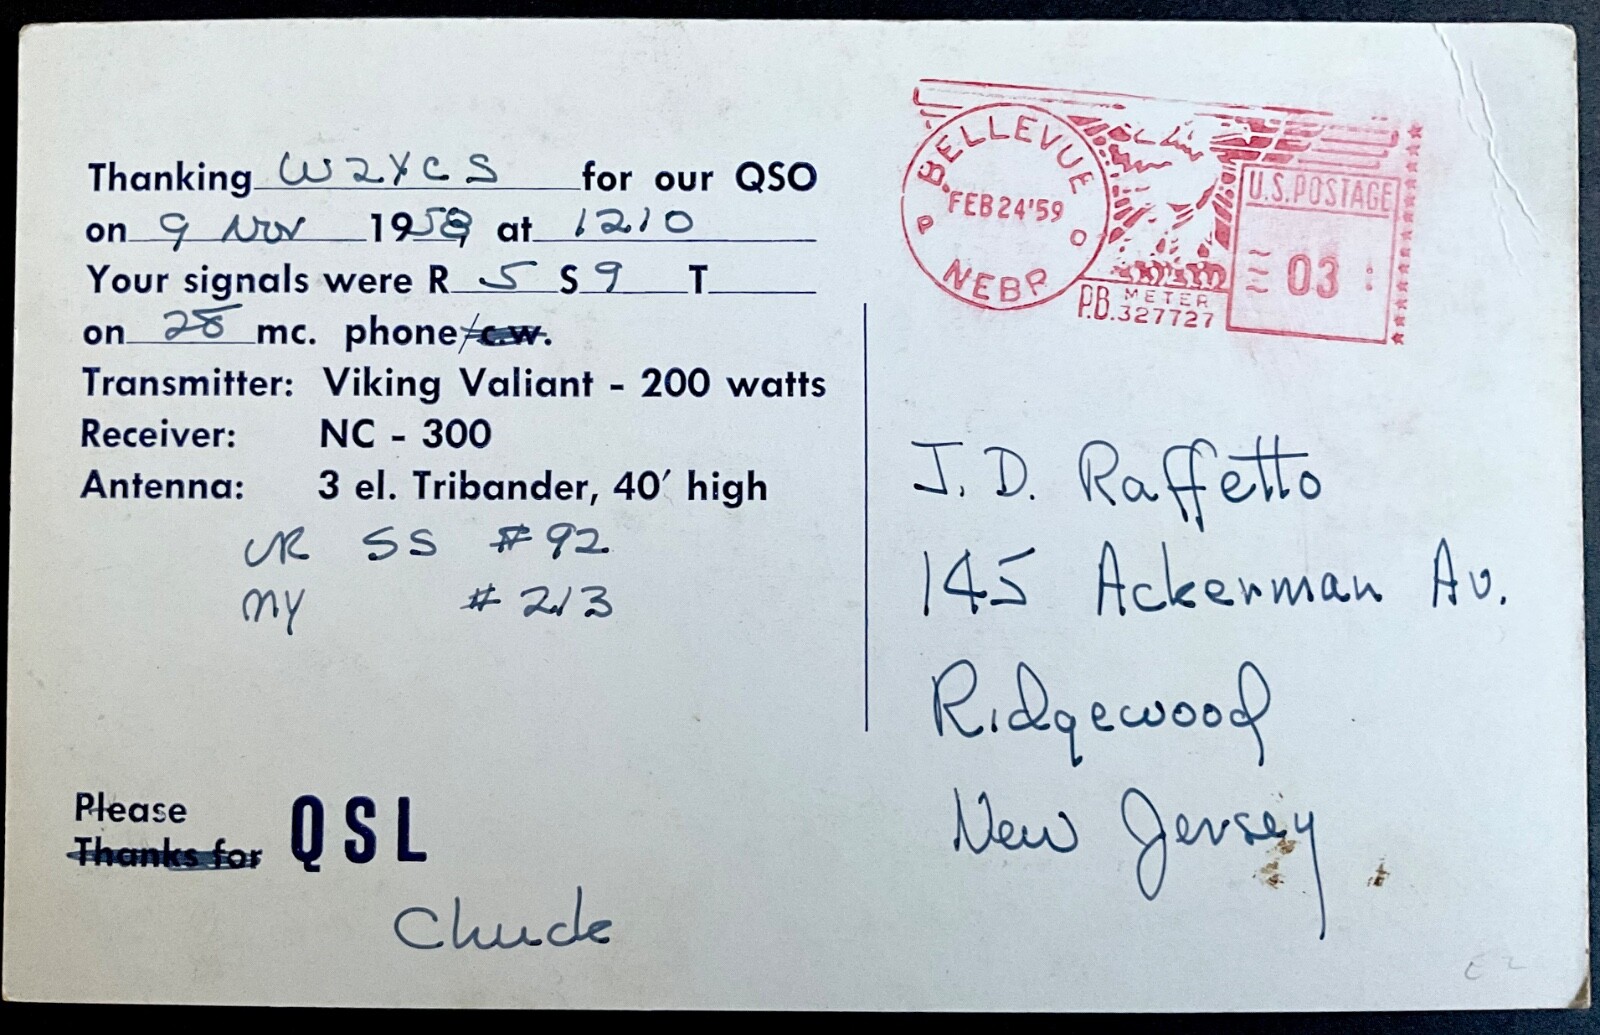 Thanking W2YCS for our QSO
on 9 Nov 1958 at 1210
Your signals were R 5 S 9 T
on 28 mc. phone/c.w.
Transmitter: Viking Valiant - 200 watts
Receiver: NC - 300
Antenna: 3 el. Tribander, 40′ high
UR SS #92
MY #213
Please
Thanks for QSL
Chuck
BELLEVUE
FEB 24 '59
P O
NEBR
P.B. METER
327727
U.S. POSTAGE
03
J. D. Raffetto
145 Ackerman Av.
Ridgewood
New Jersey